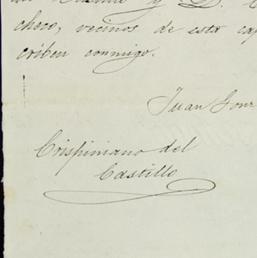 y D.
choco, vecinos de esta cap
criben conmigo.
Juan
Crispiniano del
Castillo